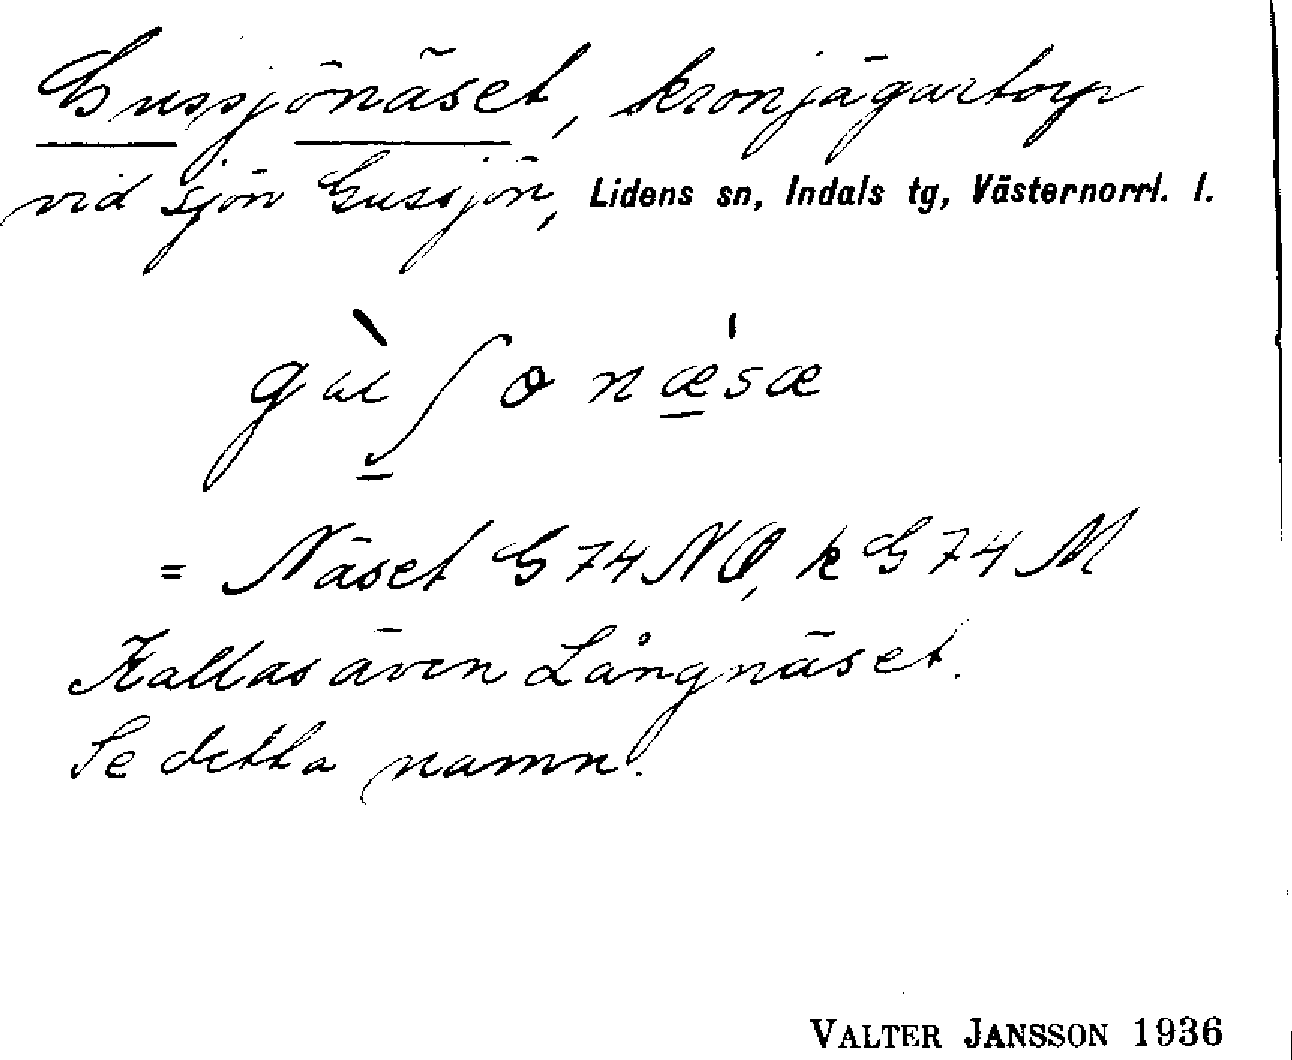 Gussjönäset, kronjägartorp
vid sjön Gussjön, Lidens sn, Indals tg, Västernorrl. l.
= Näset G 74 NO, k G 74 M
Kallas även Långnäset.
Se detta namn.
VALTER JANSSON 1936